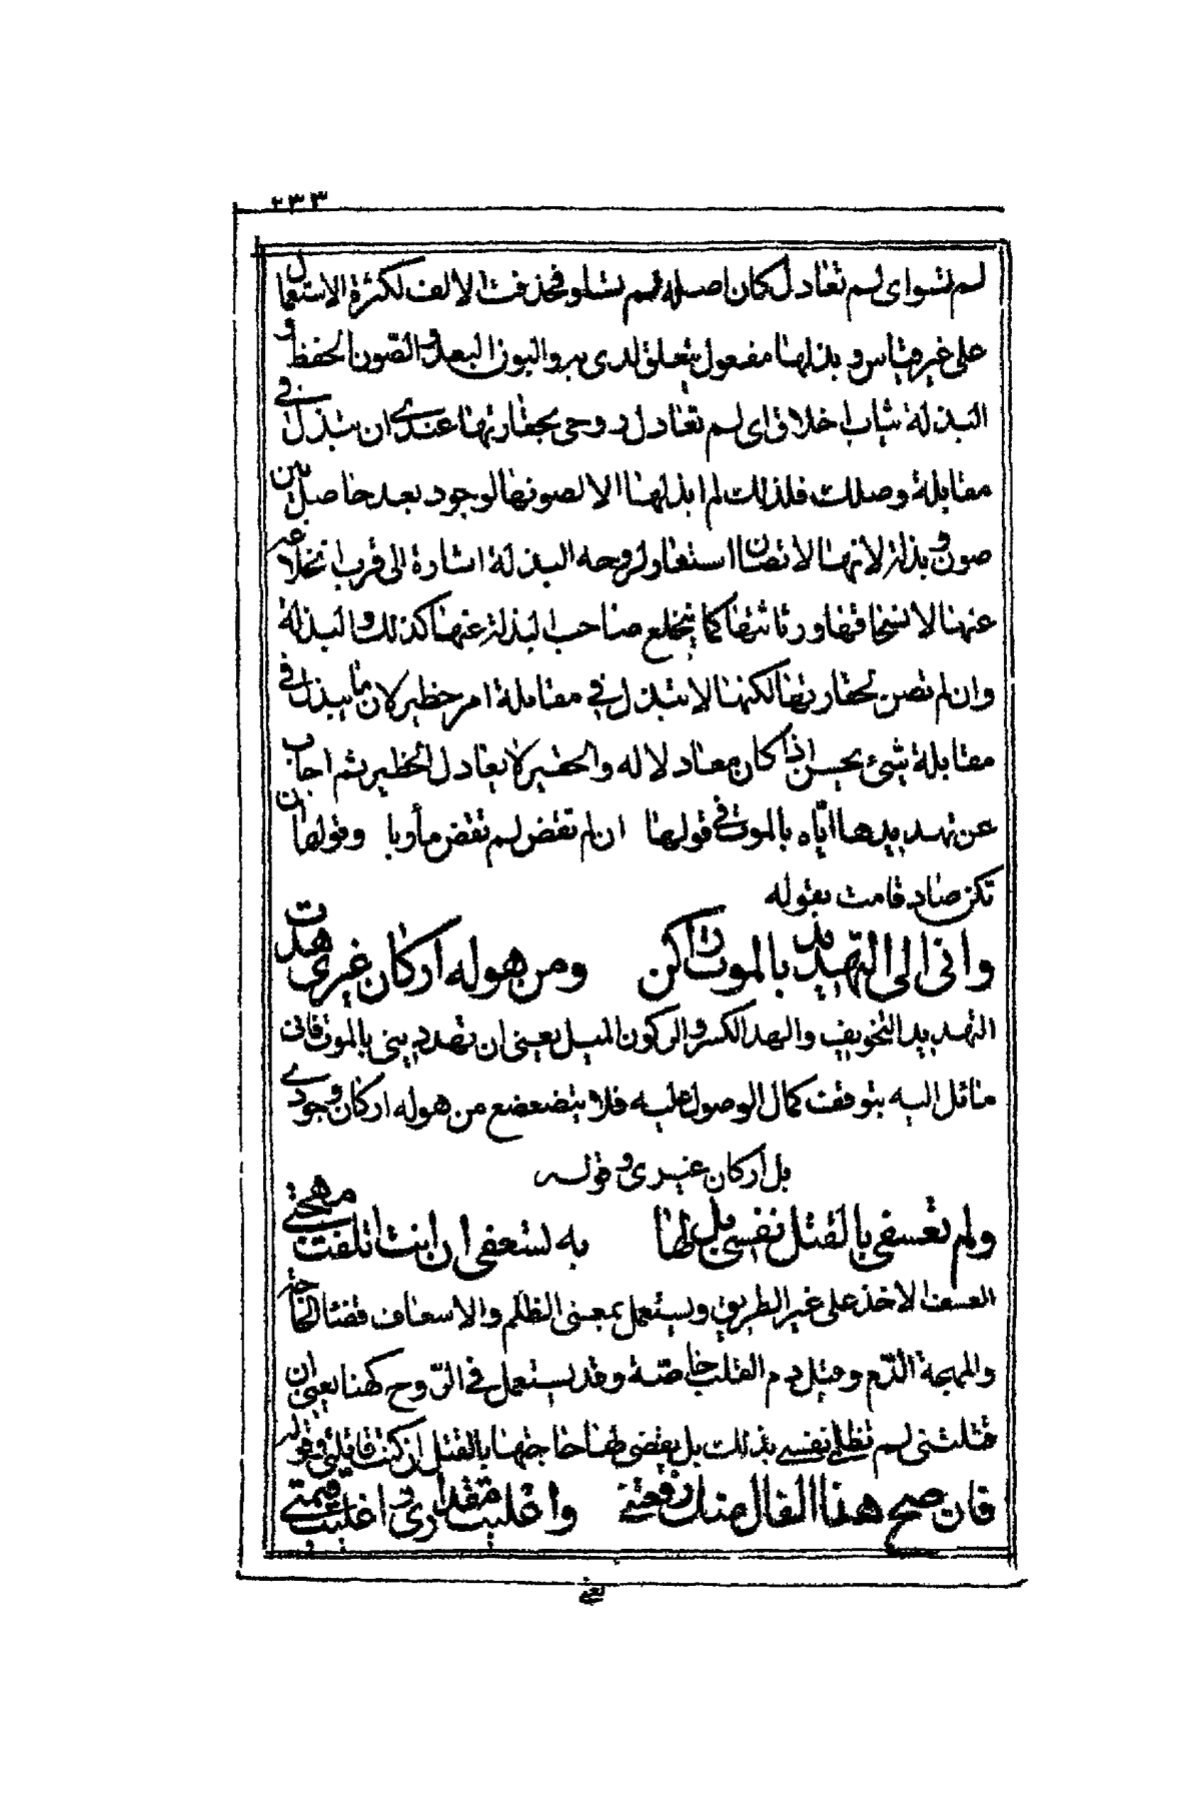 ٢٣٣
لم تسو اى لم تعادل كان اصله لم تساو فحذفت الالف لكثرة الاستعمال
على غير قياس و بذلها مفعول يتعلق لدى به والبون البعد والصون الحفظ و
البذلة ثياب اخلاق اى لم تعادل روحى بحقارتها عندى ان تبتذل فى
مقابلة وصلك فلذلك لم ابذلها الا لصونها لوجود بعد حاصل بين
صون و بذلة لانها لا تصان استعار لروحه البذلة اشارة الى قرب انخلاعه
عنها لانسحاقها ورثاثتها كما ينخلع صاحب البذلة عنها كذلك والبذلة
وان لم تصن لحقارتها لكنها لا تبتذل فى مقابلة امر خطير لان ما يبذل فى
مقابلة شىء يحسن اذا كان معادلا له والحقير لا يعادل الخطير ثم اجاب
عن تهديدها اياه بالموت فى قولها ان لم تقض لم تقض مأربا وقولها ان
تكن صادقا مت بقوله
وانى الى التهديد بالموت راكن ومن هوله اركان غيرى هدت
التهديد التخويف والهد الكسر والركون الميل يعنى ان تهددينى بالموت فانى
مائل اليه بتوقف كمال الوصول عليه فلا يتضعضع من هوله اركان وجودى
بل اركان غيرى و قوله
ولم تعسفى بالقتل نفسى بل لها به تسعفى ان انت اتلفت مهجتى
العسف الاخذ على غير الطريق ويستعمل بمعنى الظلم والاسعاف قضاء الحاجة
والمهجة الدم وقيل دم القلب خاصة وقد يستعمل فى الروح كهنا يعنى ان
قتلتنى لم تظلمى نفسى بذلك بل يقضى لها حاجتها بالقتل ان كنت قاتلتى وقوله
فان صح هذا الفال منك رفعتنى واعليت مقدارى و اغليت قيمتى